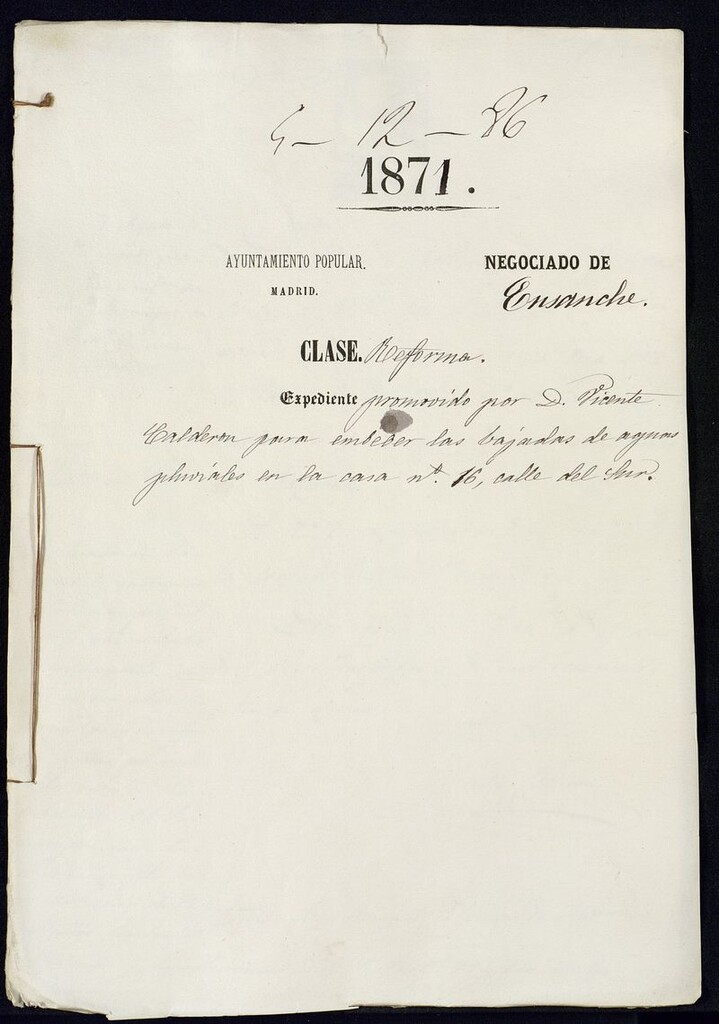 5 - 12 - 86
1871.
AYUNTAMIENTO POPULAR.
MADRID.
NEGOCIADO DE
Ensanche.
CLASE. Reforma.
Expediente promovido por D. Vicente
Calderon para embeber las bajadas de aguas
pluviales en la casa nº. 16, calle del Sur.